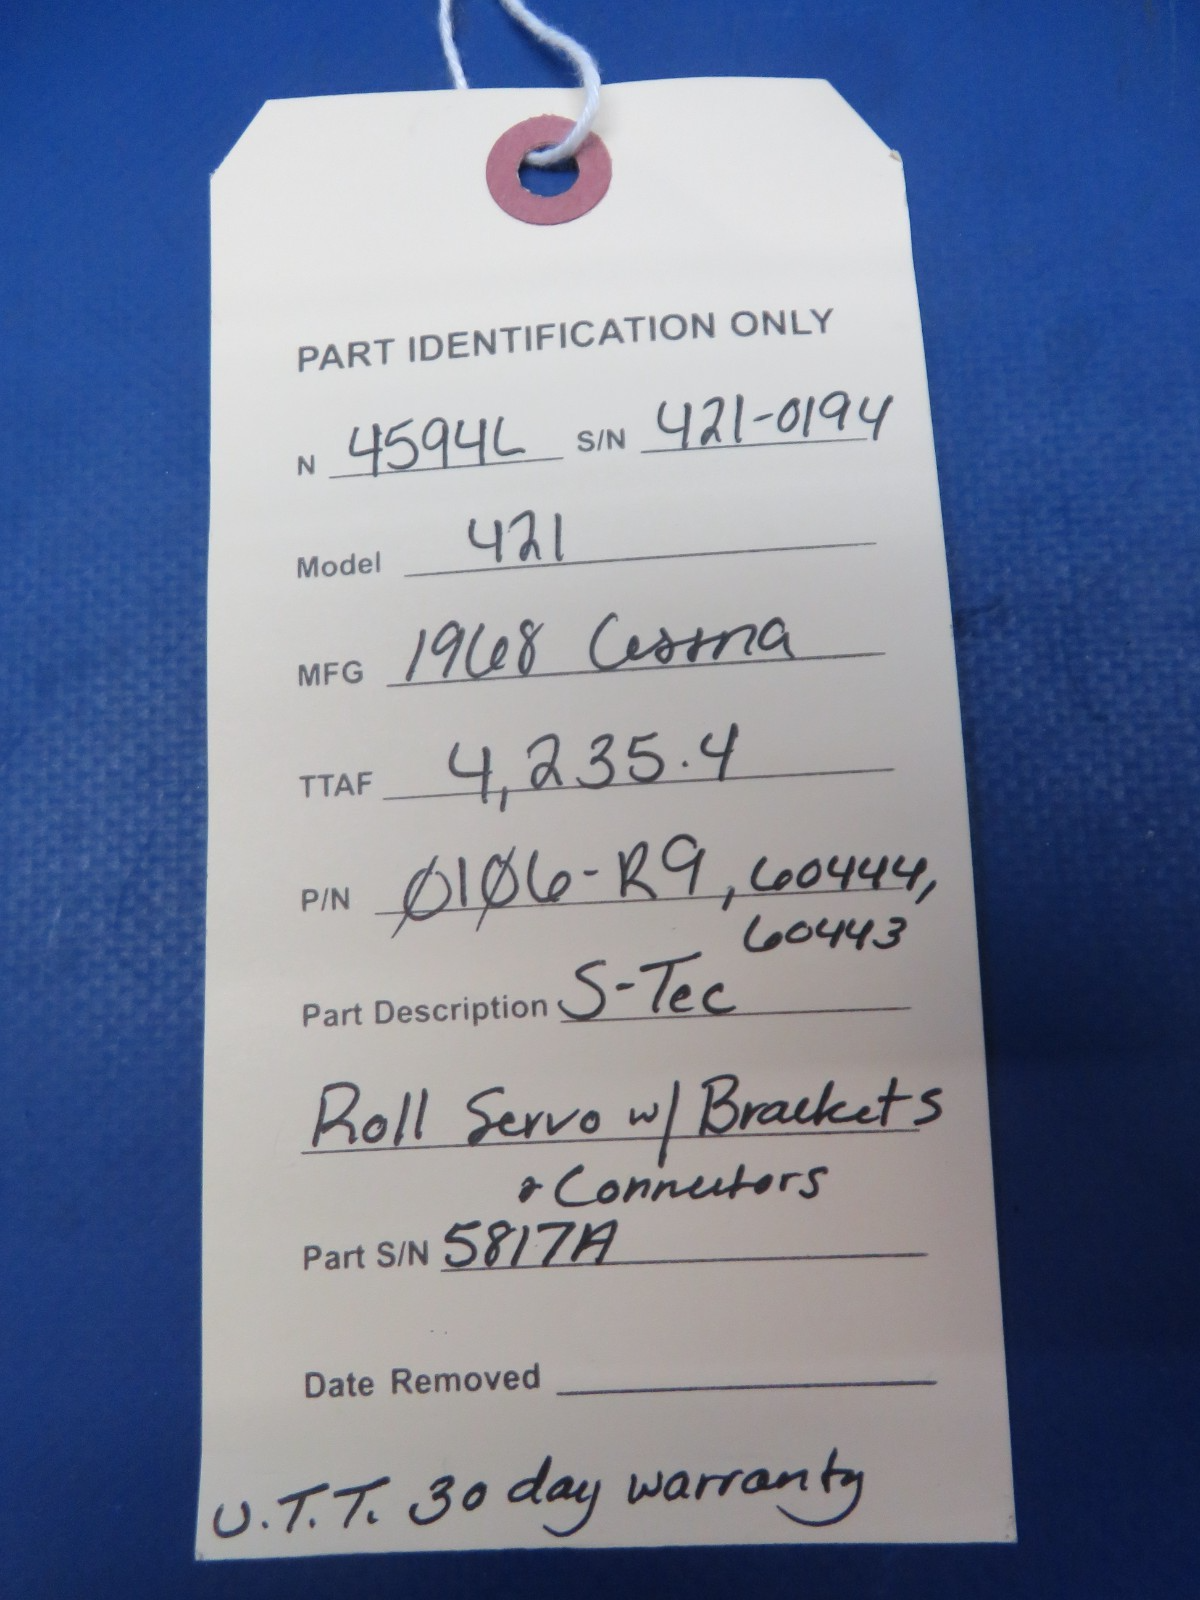 PART IDENTIFICATION ONLY
N 4594L S/N 421-0194
Model 421
MFG 1968 Cessna
TTAF 4,235.4
P/N 0106-R9, 60444,
60443
Part Description S-Tec
Roll Servo w/ Brackets
& Connectors
Part S/N 5817A
Date Removed
U.T.T. 30 day warranty